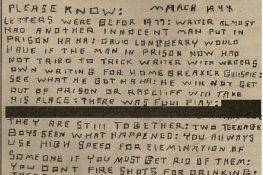 PLEASE KNOW: MARCH 1977
LETTERS WERE BEFOR 1977: WRITER ALMOST
HAD ANOTHER INNOCENT MAN PUT IN
PRISON HAHA: DAVID LONGBERRY WOULD
HAVE IF THE MAN IN PRISON NOW HAD
NOT TRIED TO TRICK WRITER WITH WRITERS
OWN WRITING FOR HOMEBREAKER GILLISPIE:
SEE WHAT HE GOT HAHA: HE WILL NOT GET
OUT OF PRISON OR RADCLIFF WILL TAKE
HIS PLACE: THERE WAS FOUL PLAY:
THEY ARE STILL TOGETHER: TWO TEENAGE
BOYS SEEN WHAT HAPPENED: YOU ALWAYS
USE HIGH SPEED FOR ELEMINATION OF
SOMEONE IF YOU MUST GET RID OF THEM:
YOU DONT FIRE SHOTS FOR DRINKING: